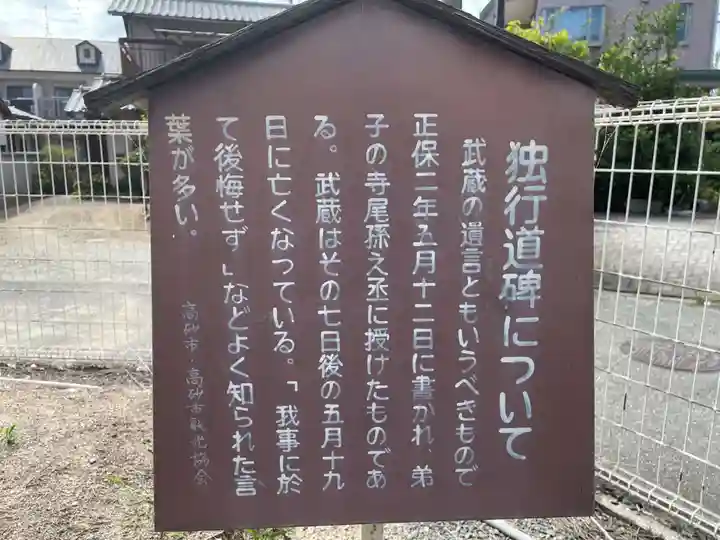 独行道碑について
武蔵の遺言ともいうべきもので
正保二年五月十二日に書かれ、弟
子の寺尾孫え丞に授けたものであ
る。武蔵はその七日後の五月十九
日に亡くなっている。「我事に於
て後悔せず」などよく知られた言
葉が多い。
高砂市・高砂市観光協会